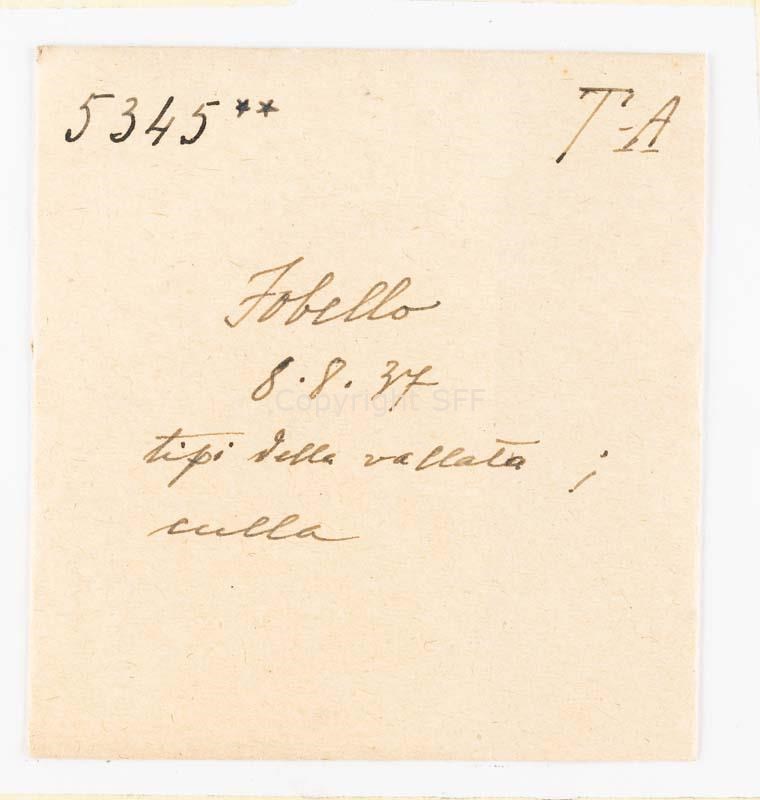 5345** T-A
Fobello
8.8.37
Copyright SFF
tipi della vallata ;
culla